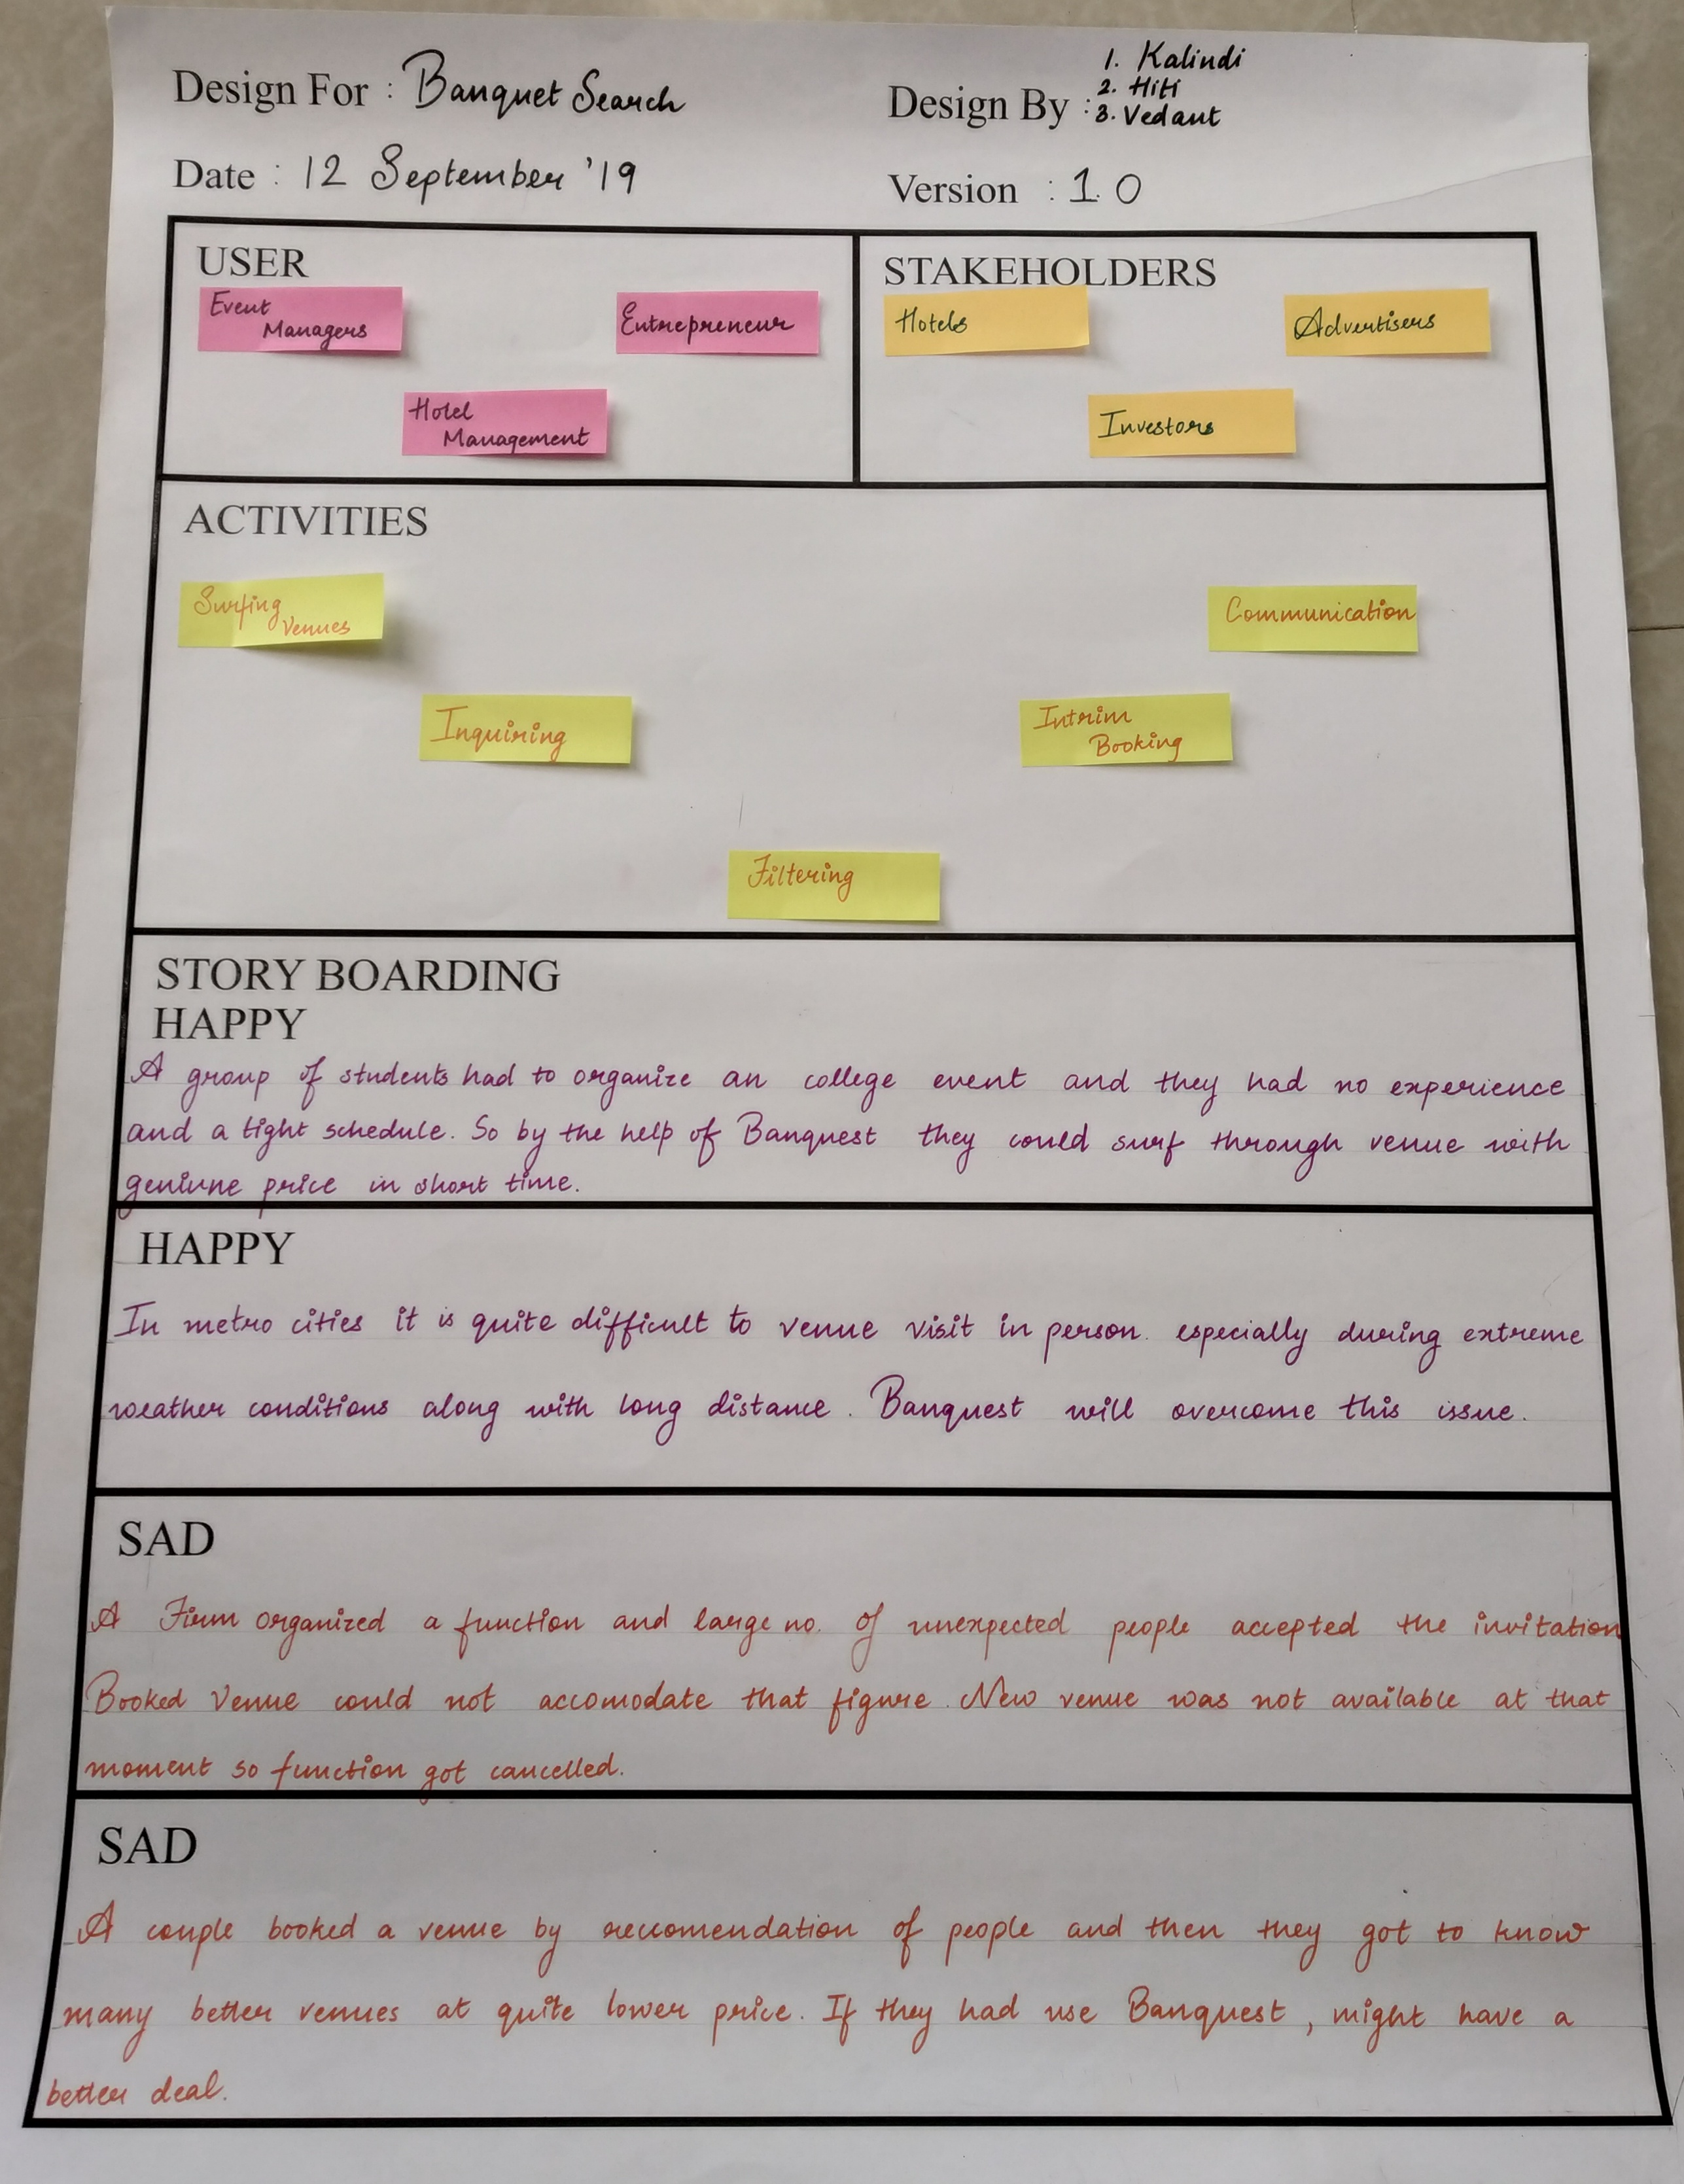 Design For : Banquet Search
Design By : 1. Kalindi
2. Hiti
3. Vedant
Date : 12 September '19
Version : 1.0
USER
Event
Managers
Entrepreneur
Hotel
Management
STAKEHOLDERS
Hotels
Advertisers
Investors
ACTIVITIES
Surfing
Venues
Communication
Inquiring
Intrim
Booking
Filtering
STORY BOARDING
HAPPY
A group of students had to organize an college event and they had no experience
and a tight schedule. So by the help of Banquest they could surf through venue with
geniune price in short time.
HAPPY
In metro cities it is quite difficult to venue visit in person. especially during extreme
weather conditions along with long distance. Banquest will overcome this issue.
SAD
A Firm organized a function and large no. of unexpected people accepted the invitation
Booked Venue could not accomodate that figure. New venue was not available at that
moment so function got cancelled.
SAD
A couple booked a venue by reccomendation of people and then they got to know
many better venues at quite lower price. If they had use Banquest, might have a
better deal.